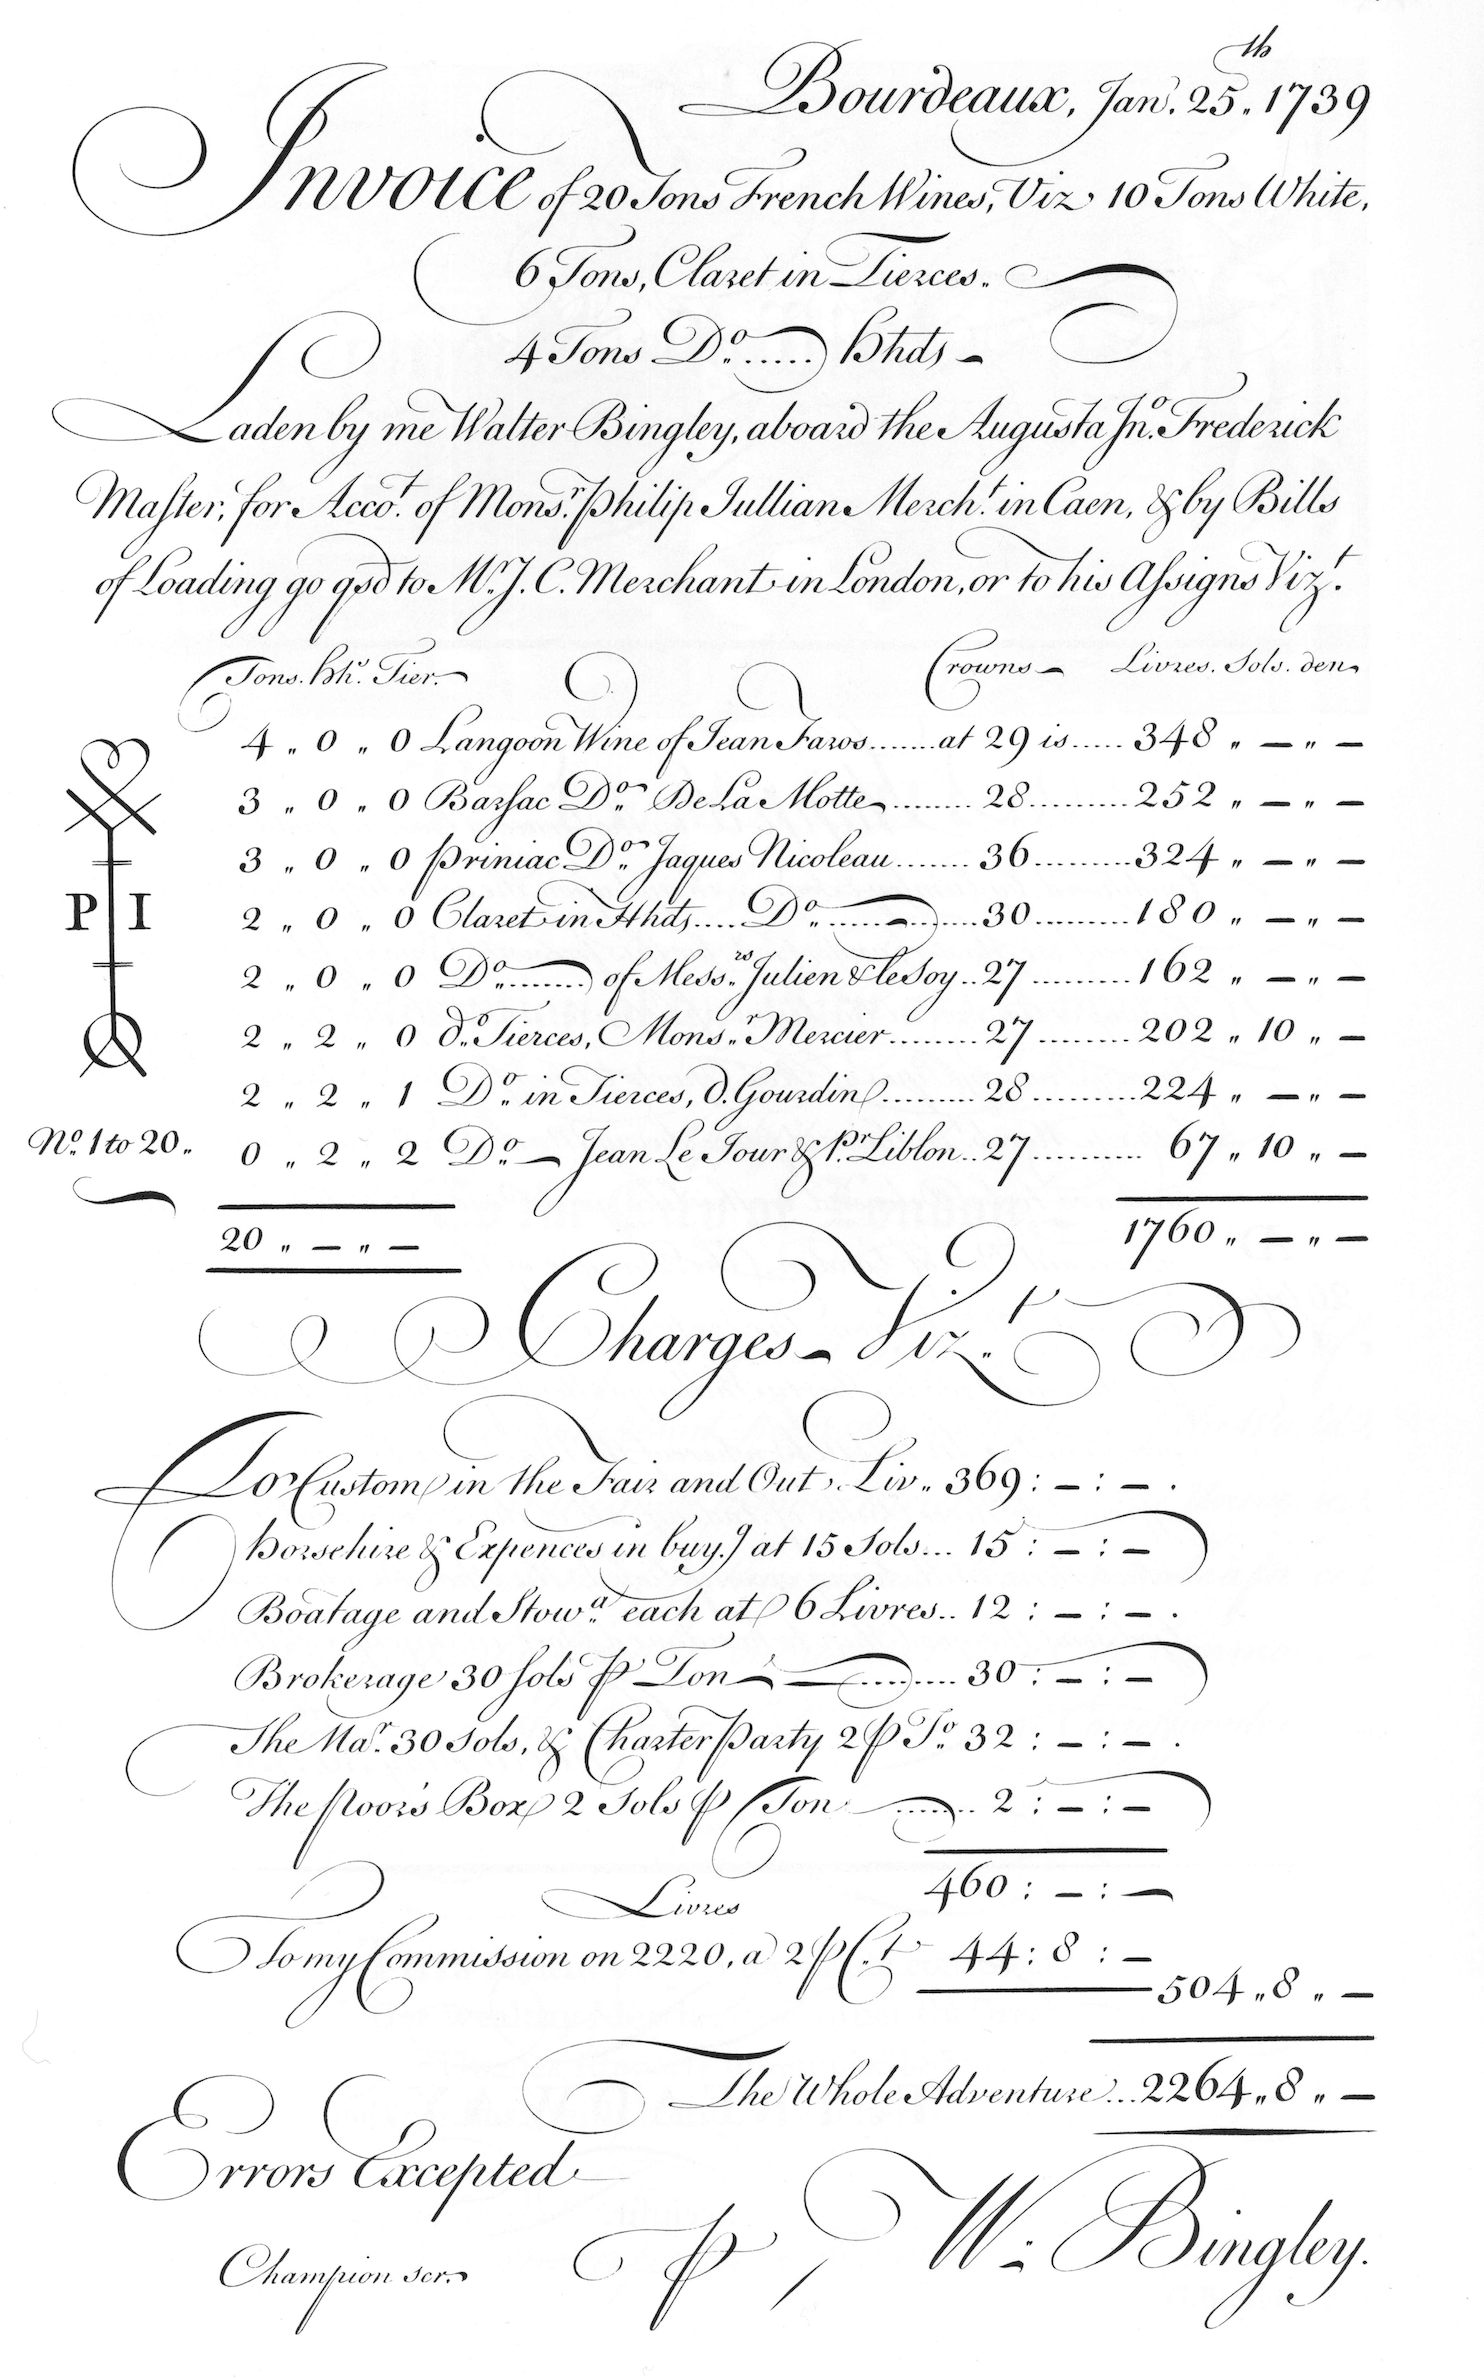 Bourdeaux, Jan. 25.th 1739
Invoice of 20 Tons French Wines, Viz 10 Tons White,
6 Tons, Claret in Tierces.
4 Tons Do. ..... Hhds -
Laden by me Walter Bingley, aboard the Augusta Jno. Frederick
Maſter, for Accot. of Monsr. Philip Jullian Mercht. in Caen, & by Bills
of Loading go gsd to Mr. J. C. Merchant in London, or to his Aſsigns Vizt.
Tons. Hh. Tier. Crowns - Livres. Sols. den.
4 " 0 " 0 Langoon Wine of Jean Faros.......at 29 is.....348 " — " —
3 " 0 " 0 Barſac Do. De La Motte........28.........252 " — " —
3 " 0 " 0 Priniac Do. Jaques Nicoleau.......36.........324 " — " —
2 " 0 " 0 Claret in Hhds.... Do. ........30.........180 " — " —
2 " 0 " 0 Do. ........ of Messrs. Julien & leSoy..27.........162 " — " —
2 " 2 " 0 do. Tierces, Monsr. Mercier........27.........202 " 10 " —
2 " 2 " 1 Do. in Tierces, d. Gourdin.........28.........224 " — " —
No. 1 to 20. 0 " 2 " 2 Do. — Jean Le Tour & Pr. Liblon..27.......... 67 " 10 " —
P I
20 " — " — 1760 " — " —
Charges - Vizt.
To Custom in the Fair and Out. Liv. 369 : — : — .
Horsehire & Expences in buy.g at 15 Sols... 15 : — : —
Boatage and Stow.a each at 6 Livres.. 12 : — : — .
Brokerage 30 ſols ⅌ Ton ........ 30 : — : —
The Mar. 30 Sols, & Charter Party 2 ⅌ To. 32 : — : — .
The Poors Box 2 Sols ⅌ Ton ........ 2 : — : —
460 : — : —
Livres
To my Commission on 2220, a 2 ⅌ C.t 44 : 8 : —
504 " 8 " —
The Whole Adventure...2264 " 8 " —
Errors Excepted
⅌ W: Bingley.
Champion scr.